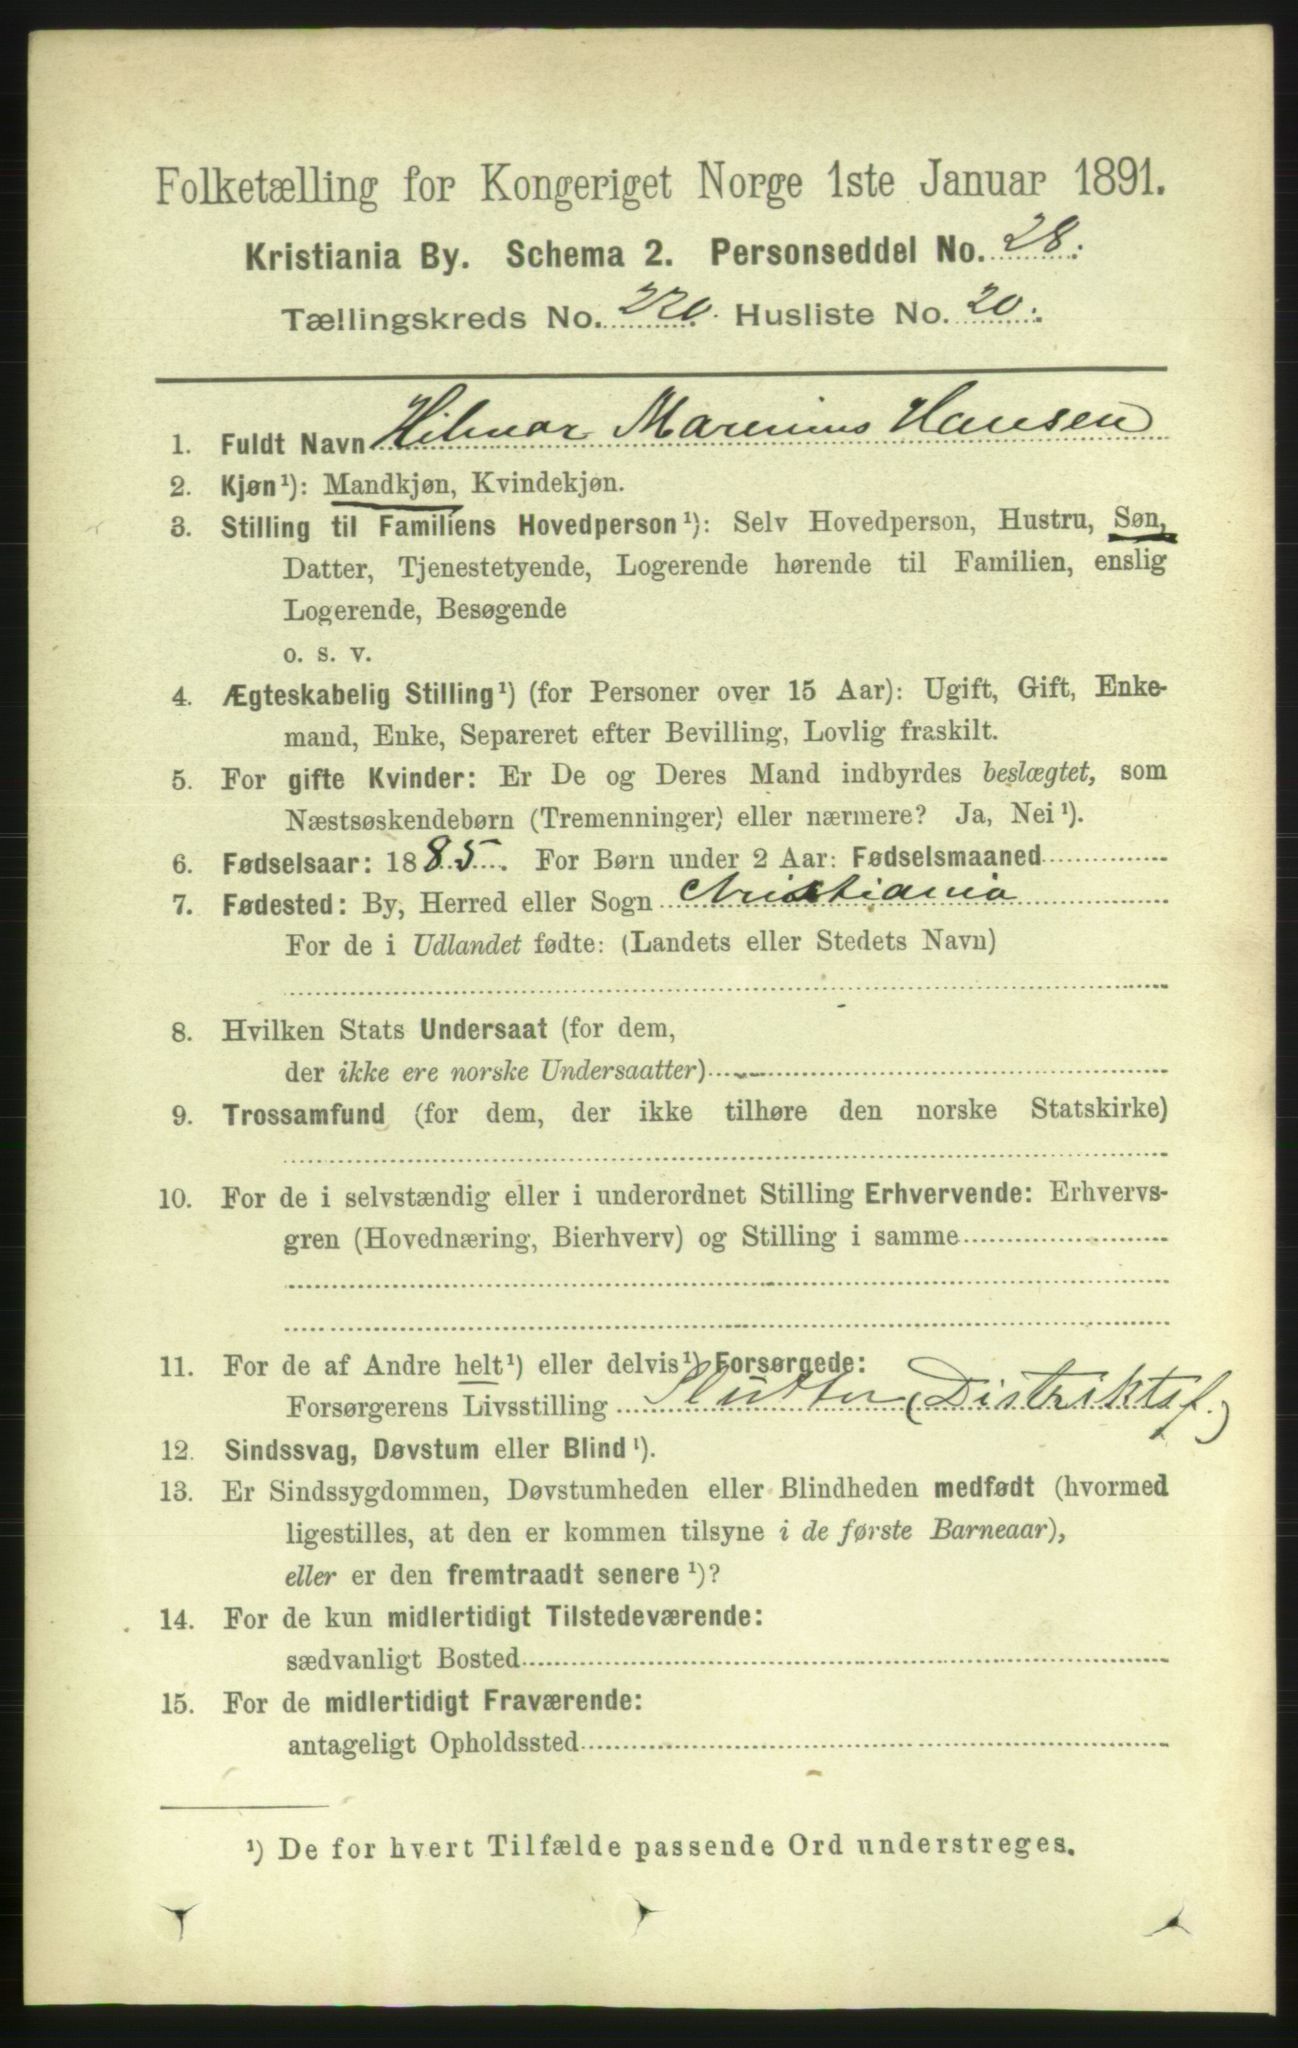 Folketælling for Kongeriget Norge 1ste Januar 1891.
Kristiania By. Schema 2. Personseddel No. 28.
Tællingskreds No. 220. Husliste No. 20.
1. Fuldt Navn Hilmar Marenius Hansen
2. Kjøn¹): Mandkjøn, Kvindekjøn.
3. Stilling til Familiens Hovedperson¹): Selv Hovedperson, Hustru, Søn,
Datter, Tjenestetyende, Logerende hørende til Familien, enslig
Logerende, Besøgende
o. s. v.
4. Ægteskabelig Stilling¹) (for Personer over 15 Aar): Ugift, Gift, Enke-
mand, Enke, Separeret efter Bevilling, Lovlig fraskilt.
5. For gifte Kvinder: Er De og Deres Mand indbyrdes beslægtet, som
Næstsøskendebørn (Tremenninger) eller nærmere? Ja, Nei¹).
6. Fødselsaar: 1885. For Børn under 2 Aar: Fødselsmaaned
7. Fødested: By, Herred eller Sogn Kristiania
For de i Udlandet fødte: (Landets eller Stedets Navn)
8. Hvilken Stats Undersaat (for dem,
der ikke ere norske Undersaatter)
9. Trossamfund (for dem, der ikke tilhøre den norske Statskirke)
10. For de i selvstændig eller i underordnet Stilling Erhvervende: Erhvervs-
gren (Hovednæring, Bierhverv) og Stilling i samme
11. For de af Andre helt¹) eller delvis¹) Forsørgede:
Forsørgerens Livsstilling Slutter (Distriktsf.)
12. Sindssvag, Døvstum eller Blind¹).
13. Er Sindssygdommen, Døvstumheden eller Blindheden medfødt (hvormed
ligestilles, at den er kommen tilsyne i de første Barneaar),
eller er den fremtraadt senere¹)?
14. For de kun midlertidigt Tilstedeværende:
sædvanligt Bosted
15. For de midlertidigt Fraværende:
antageligt Opholdssted
¹) De for hvert Tilfælde passende Ord understreges.